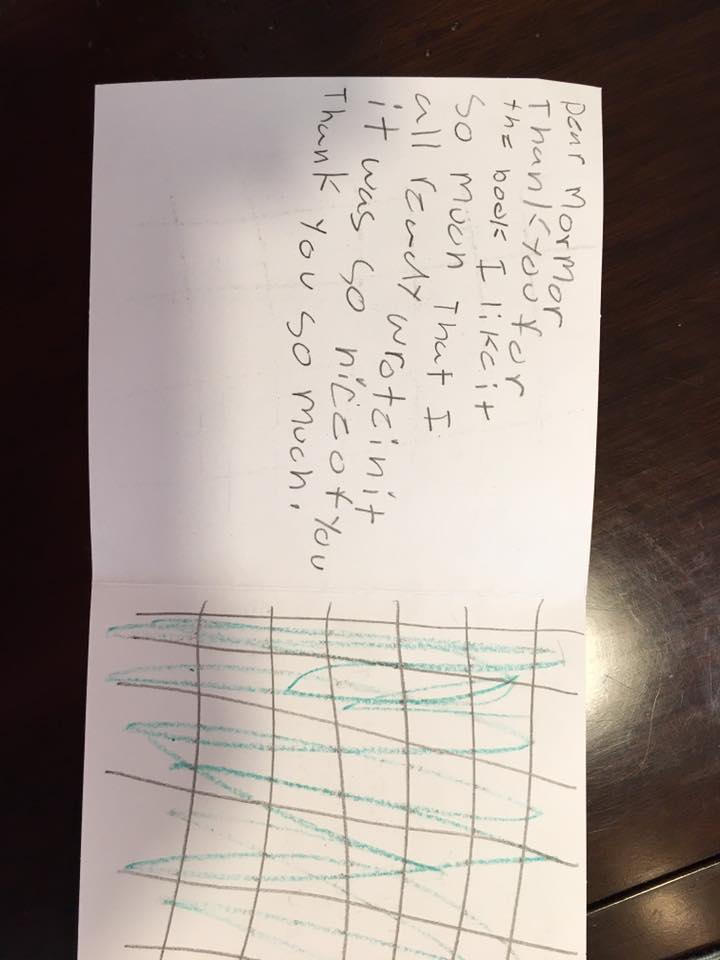 Dear MorMor
Thank you for
the book I like it
So much That I
all ready wrote in it
it was so nice of you
Thank you so much.